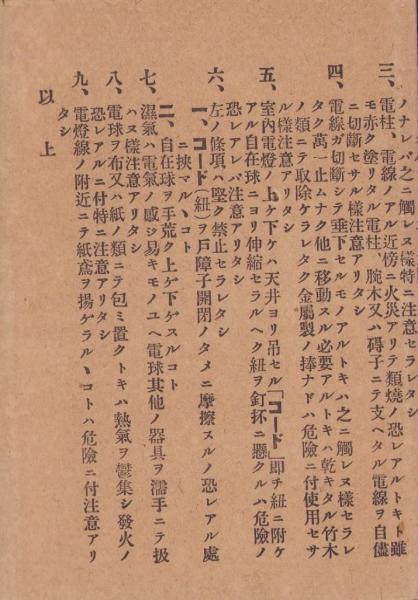 ノナレバ之ニ觸レヌ樣特ニ注意セラレタシ
三、電柱、電線ノアル近傍ニ火災アリテ類燒ノ恐レアルトキト雖
モ赤ク塗リタル電柱、腕木又ハ碍子ニテ支ヘタル電線ヲ自儘
ニ切斷セサル樣注意アリタシ
四、電線ガ切斷シテ垂下セルモノアルトキハ之ニ觸レヌ樣セラレ
タク萬一止ムナク他ニ移動スル必要アルトキハ乾キタル竹木
ノ類ニテ取除ケラレタク金屬製ノ棒ナドハ危險ニ付使用セサ
ル樣注意アリタシ
五、室內電燈ノ上ケ下ケハ天井ヨリ吊セル「コード」卽チ紐ニ附ケ
アル自在球ニヨリ伸縮セラルヘク紐ヲ釘抔ニ懸クルハ危險ノ
恐レアレバ注意アリタシ
六、左ノ條項ハ堅ク禁止セラレタシ
一、コード(紐)ヲ戶障子開閉ノタメニ摩擦スルノ恐レアル處
ニ挾マルヽコト
二、自在球ヲ手荒ク上ゲ下ゲスルコト
七、濕氣ハ電氣ノ感ジ易キモノユヘ電球其他ノ器具ヲ濡手ニテ扱
ハヌ樣注意アリタシ
八、電球ヲ布又ハ紙ノ類ニテ包ミ置クトキハ熱氣ヲ鬱集シ發火ノ
恐レアルニ付特ニ注意アリタシ
九、電燈線ノ附近ニテ紙鳶ヲ揚ゲラルヽコトハ危險ニ付注意アリ
タシ
以上